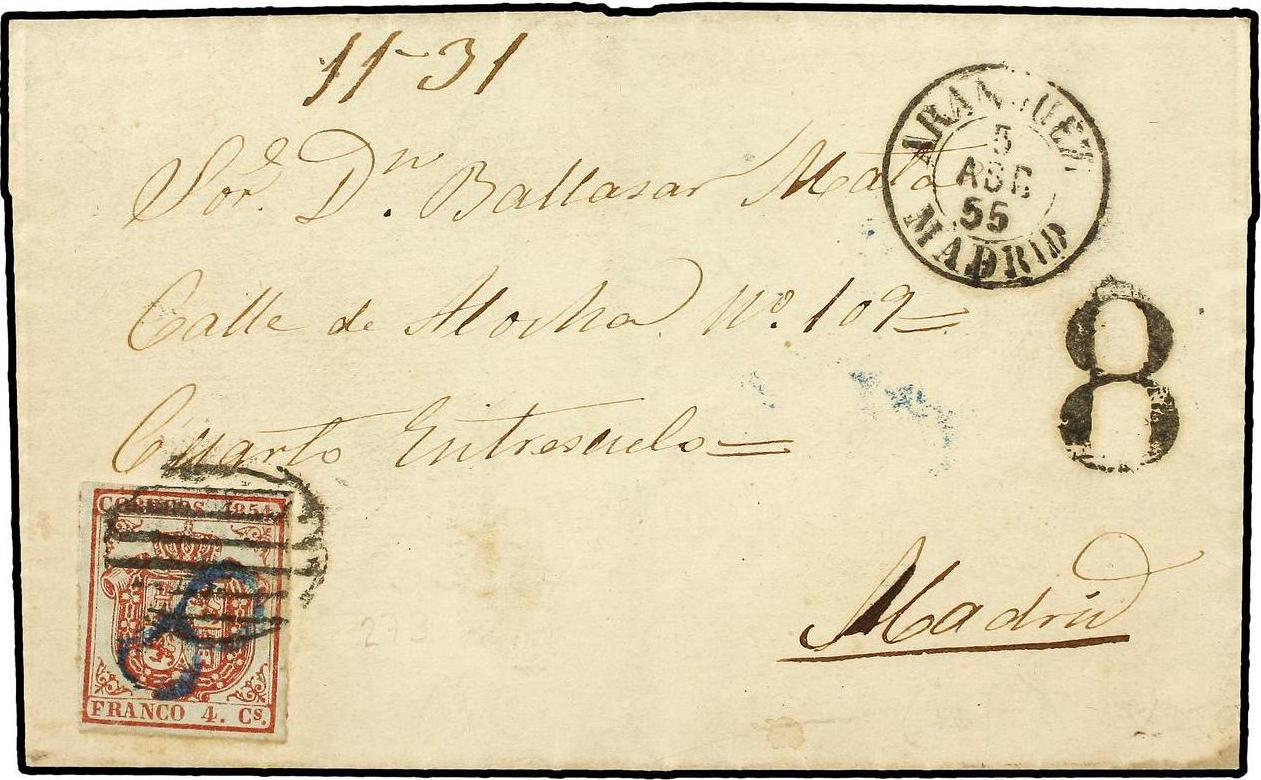 11-31
ARANJUEZ
5
AGO
55
MADRID
Sor. Dn. Baltasar Mata
Calle de Atocha Nº. 109
8
Cuarto Entresuelo
CORREOS. 1854
Madrid
27-
FRANCO 4. Cs.